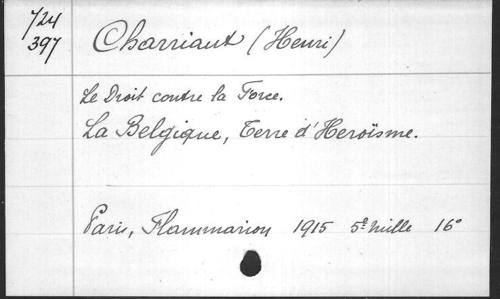 724
397
Charriaut (Henri)
Le Droit contre la Force.
La Belgique, Terre d'Heroïsme.
Paris, Flammarion 1915 5e mille 16°